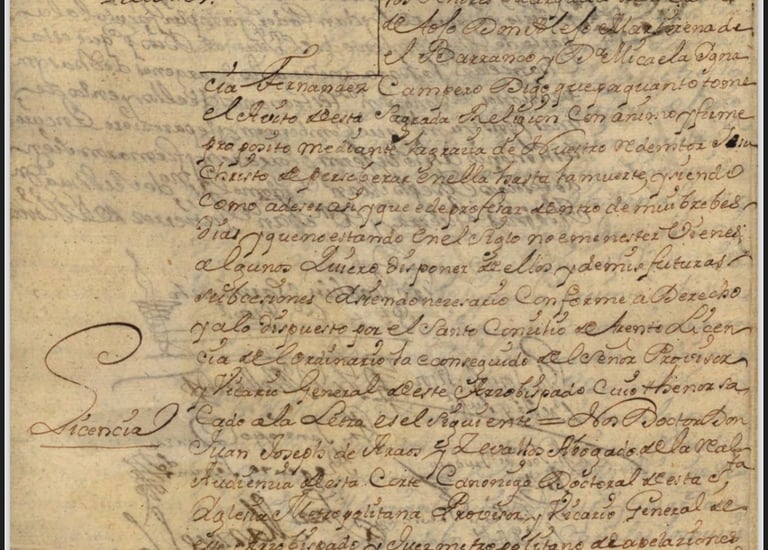 de toso Don Alejo Martirena de
el Barranco y Dª Micaela Ygna
cia Fernandez Campero Digo que por quanto tome
el Avito de esta Sagrada Religion con animo y firme
proposito mediante la gracia de Nuestro redemtor Jesu
Christo de perseberar en ella hasta la muerte, y siendo
como a de ser asi y que e de profesar dentro de mui brebes
dias y que no estando en el Siglo no e menester Vienes
algunos Quiero disponer de ellos y de mis futuras
subcesiones y siendo necesario conforme a Derecho
y a lo dispuesto por el Santo Consilio de trento Licen
cia de el ordinario la e conseguido de el Señor Provisor
y Vicario General de este Arzobispado cuio thenor sa
cado a la Letra es el siguiente = Nos Doctor Don
Licencia
Juan Joseph de Araos y Zevallos Abogado de la real
Audiencia de esta Corte Canonigo Doctoral de esta Sᵗᵃ
Iglesia Metropolitana Provisor y Vicario General de
este Arzobispado y Juez metropolitano de apelaciones